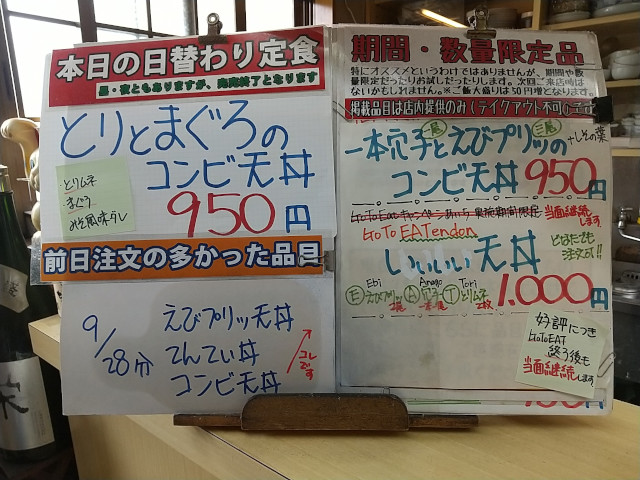 本日の日替わり定食
昼・夜ともありますが、完売終了となります
とりとまぐろの
コンビ天丼
950円
とりムネ
まぐろ
みそ風味
前日注文の多かった品目
9/28分
えびプリッ天丼
てんてい丼
コンビ天丼
コレです
期間・数量限定品
特にオススメというわけではありませんが、期間や数
量限定だったりお試しだったりします。次回ご来店時は
ないかもしれません。※ご飯大盛りは50円増となります。
掲載品目は店内提供のみ(テイクアウト不可)です
一本穴子とえびプリッの
一尾
三尾
+しその葉
コンビ天丼 950円
当面継続します。
GoTo EATendon
いいいい天丼
となたでも
注文可!!
Ebi
Anago
Tori
E えびプリッ 2尾 A 穴子 一本 T とりムネ 2枚
1.000円
好評につき
GoToEAT
終了後も
当面継続します